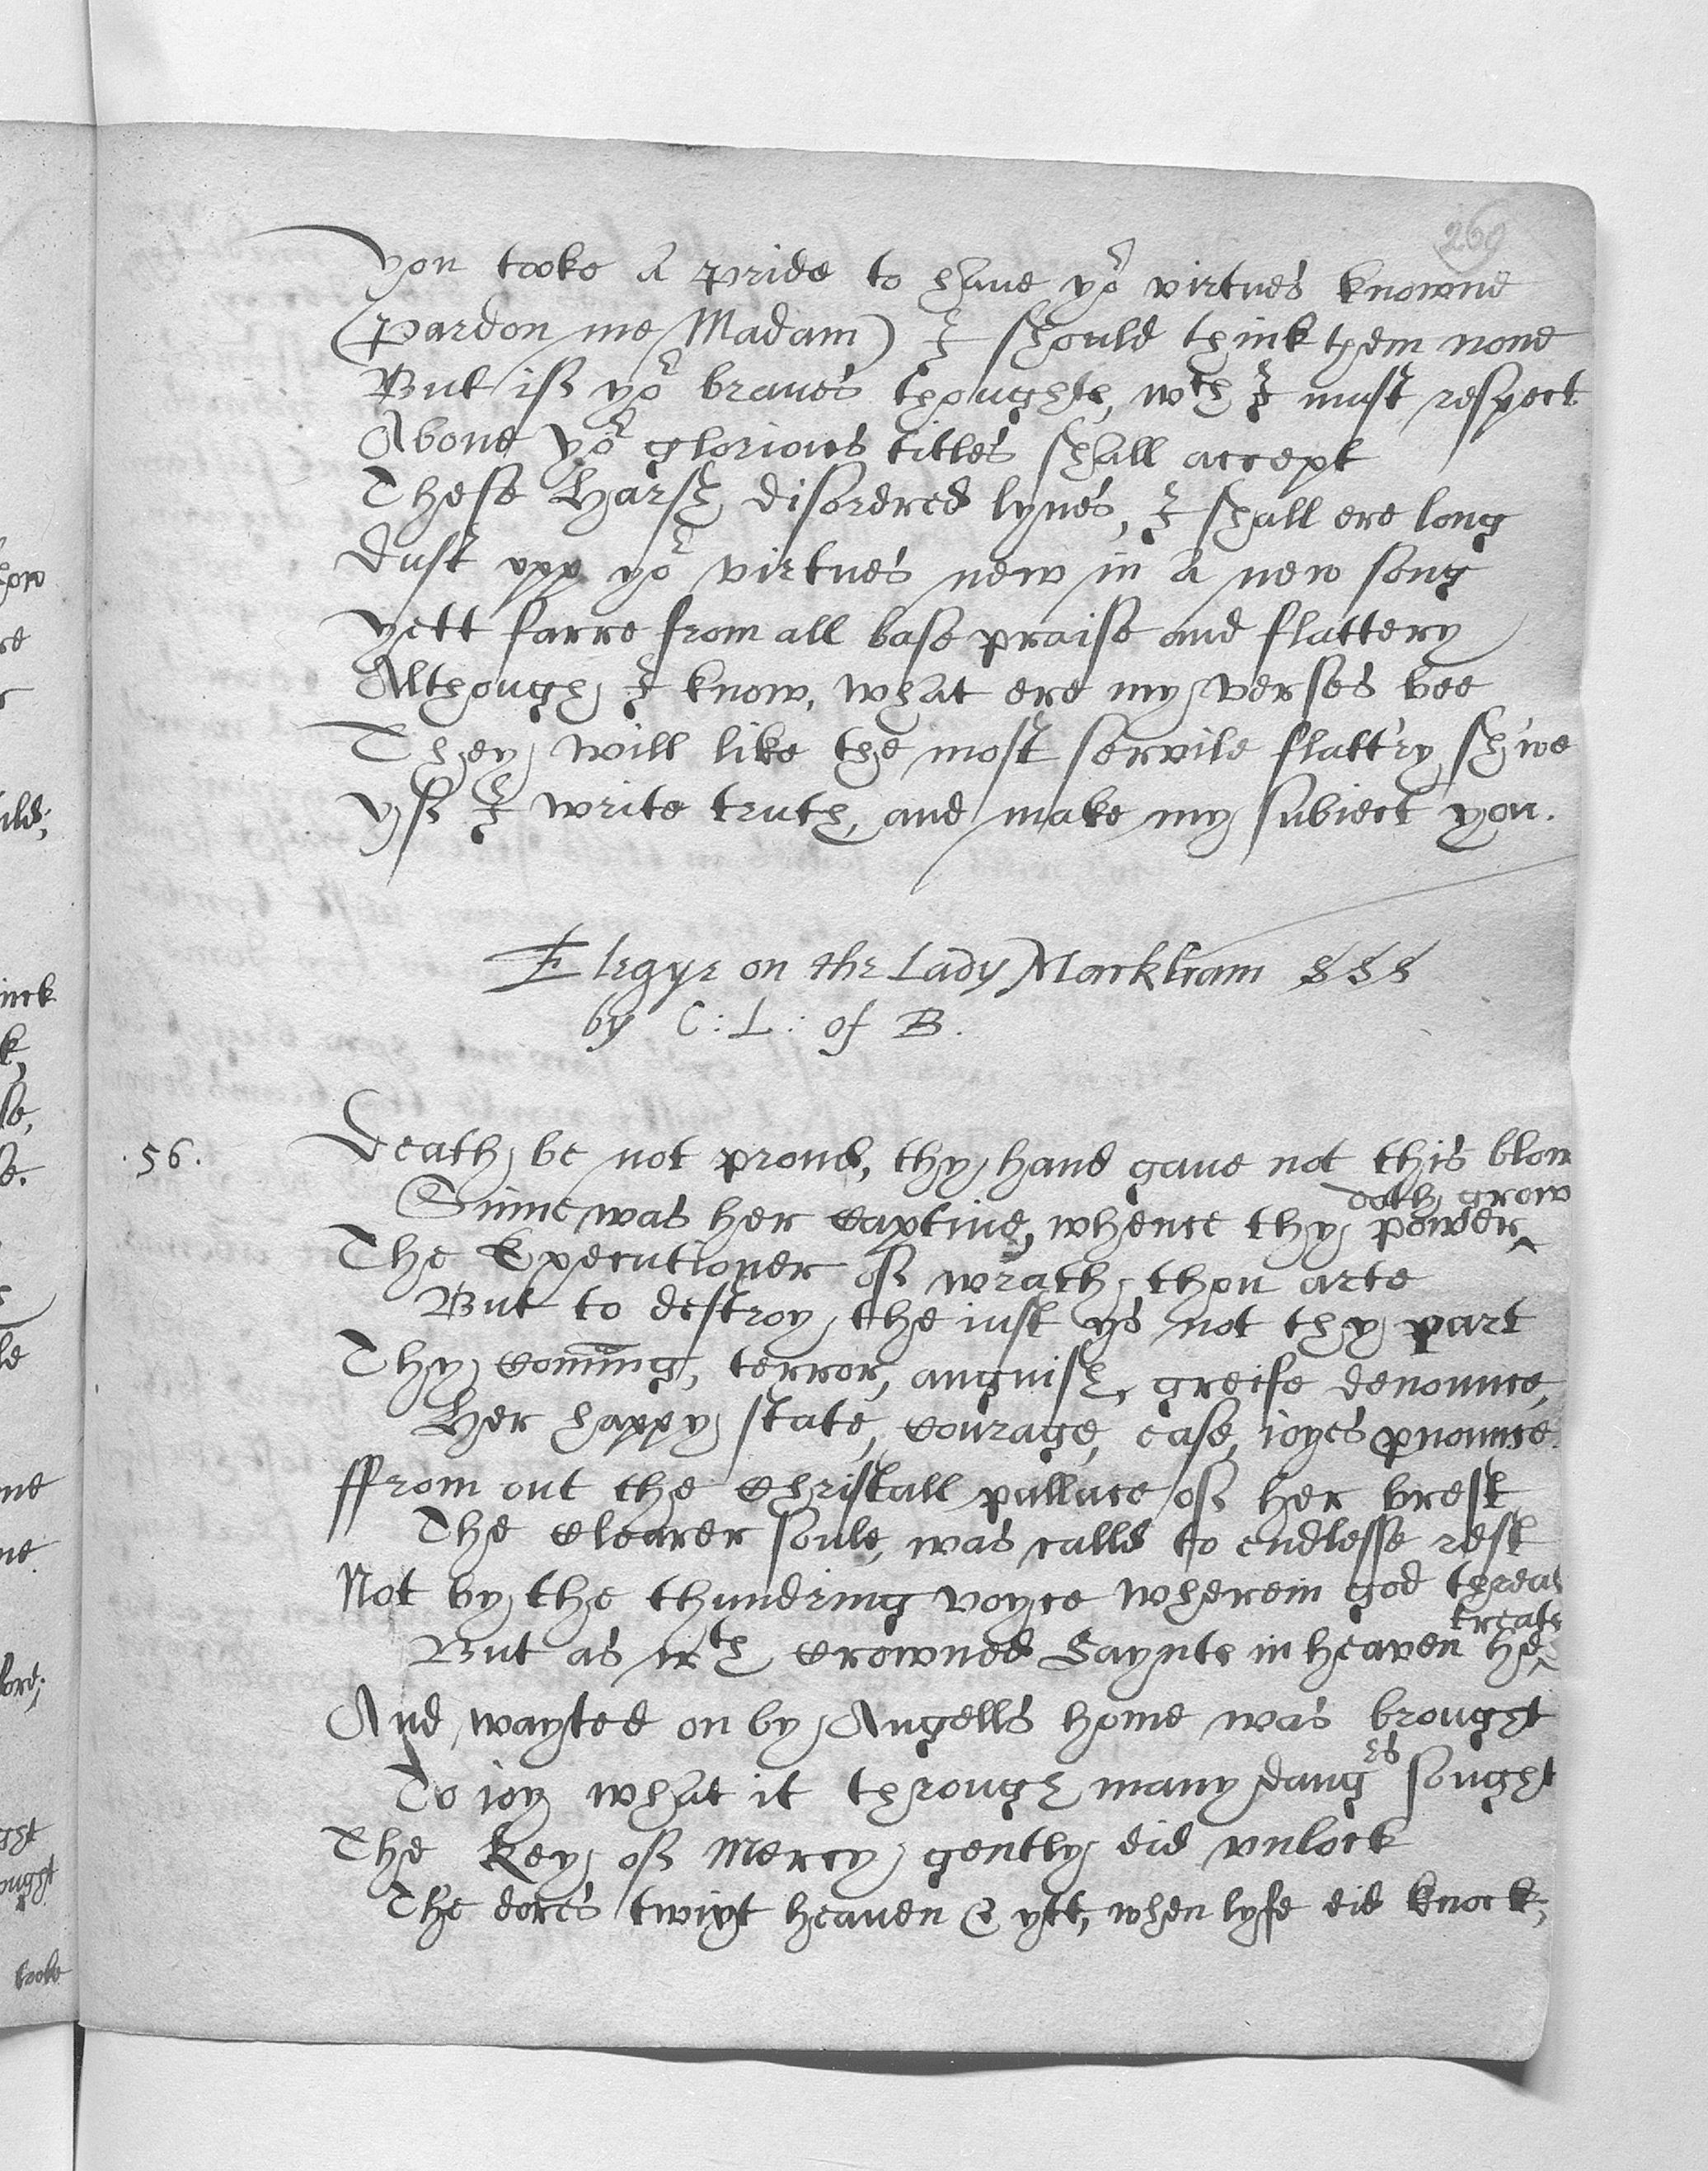 260
you tooke a pride to haue yor virtues knowne
(Pardon me Madam) I should think them none
But if yor braue's thoughts, wch I must respect
Aboue yor glorious titles shall accept
These Harsh disordred lynes, I shall ere long
Dust vpp yor virtues new in a new song
yett farre from all base praise and flattery
Although I know, what ere my verses bee
They will like the most servile flatt'ry sh'we
yf I write truth, and make my subiect you.
Elegye on the Lady Marckham
by C: L: of B.
56.
Death be not proud, thy hand gaue not this blow
doth grow
Sinne was her Captiue, whence thy power
The Executioner of wrath thou arte
But to destroy the iust ys not thy part
Thy Coming, terror, anguish, greife denounce,
Her happy state, Courage, ease, ioyes pnounce.
ffrom out the Christall pallace of her brest
The Clearer soule, was calld to endlesse rest
Not by the thundring voyce wherein god threat
treats
But as wth Crowned Saynts in heaven he
And wayted on by Angells home was brought
To ioy what it through many daungrs sought
The Key of Mercy gently did vnlock
The dores twixt heauen & ytt, when lyfe did knock,
tooke